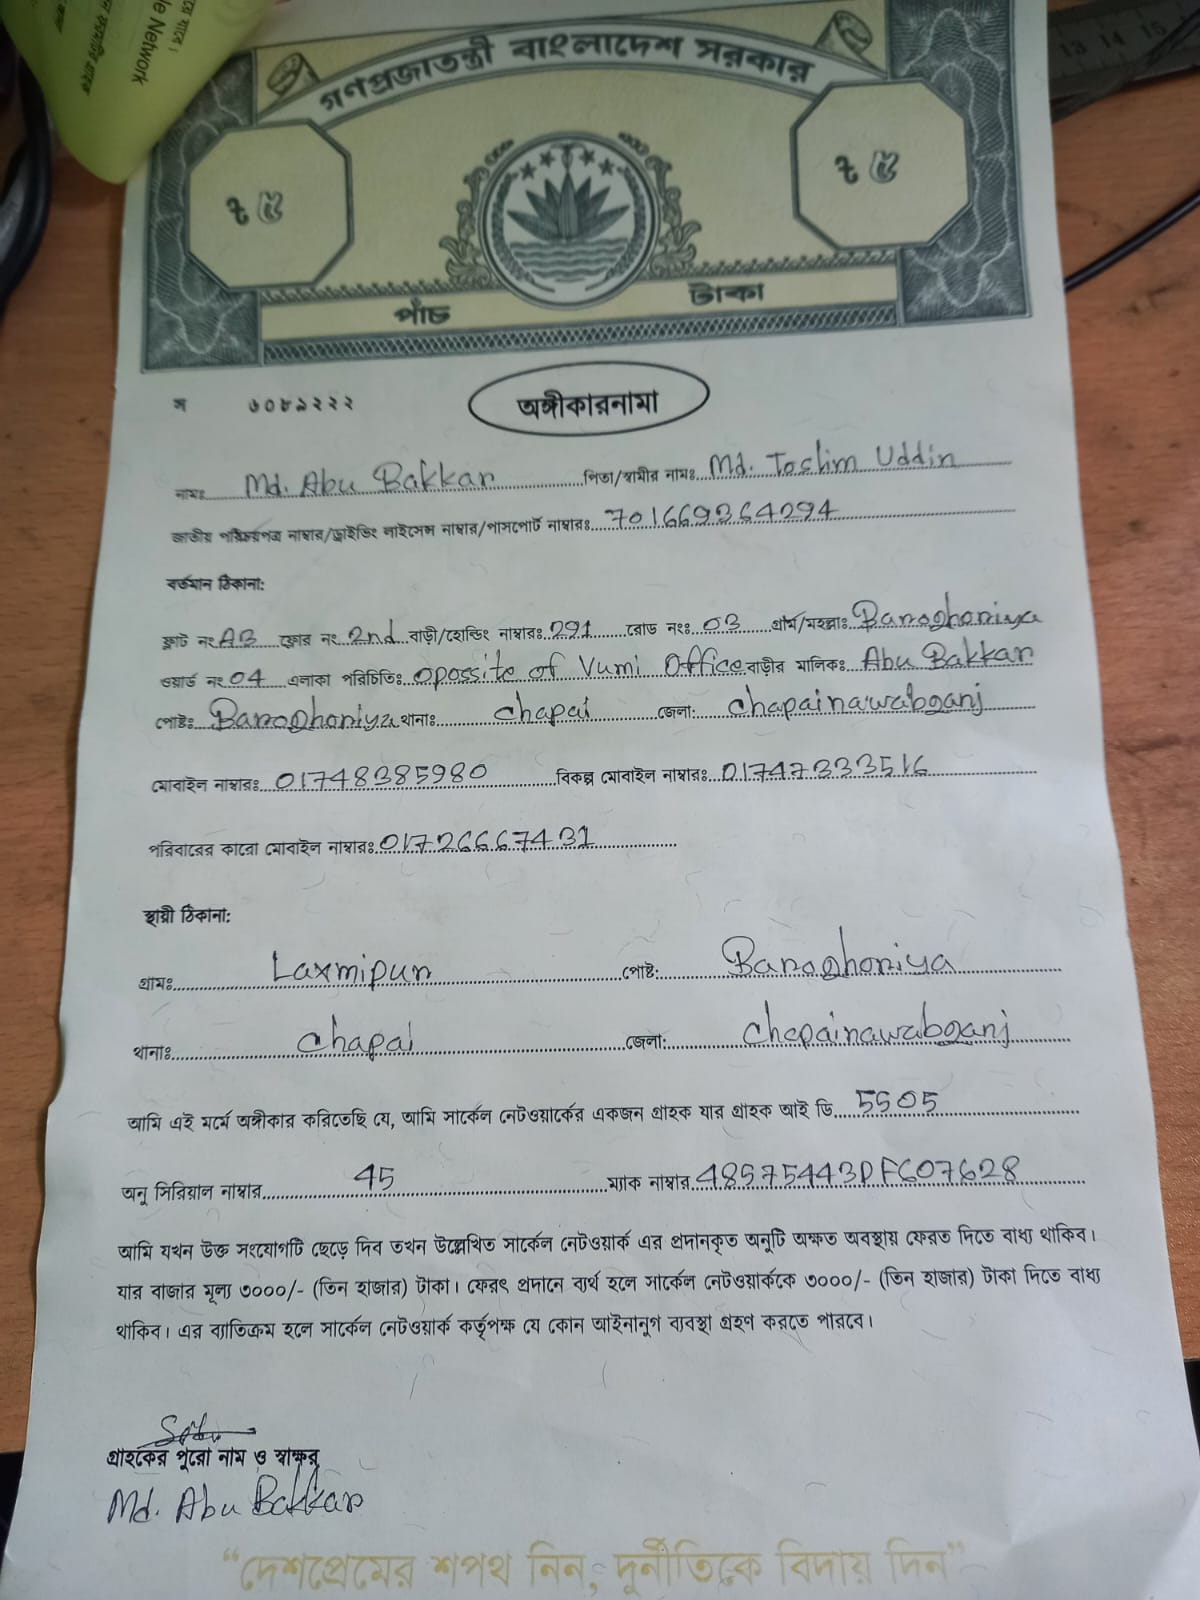 le Network
13 14 15
গণপ্রজাতন্ত্রী বাংলাদেশ সরকার
৳ ৫ ৳ ৫
পাঁচ টাকা
স ৩০৮৯২২২
অঙ্গীকারনামা
নামঃ Md. Abu Bakkar পিতা/স্বামীর নামঃ Md. Toslim Uddin
জাতীয় পরিচয়পত্র নাম্বার/ড্রাইভিং লাইসেন্স নাম্বার/পাসপোর্ট নাম্বারঃ 701669364294
বর্তমান ঠিকানা:
ফ্লাট নং A3 ফ্লোর নং 2nd বাড়ী/হোল্ডিং নাম্বারঃ 291 রোড নংঃ 03 গ্রাম/মহল্লাঃ Baroghoriya
ওয়ার্ড নং 04 এলাকা পরিচিতিঃ opossite of Vumi Office বাড়ীর মালিকঃ Abu Bakkar
পোষ্টঃ Baroghoriya থানাঃ chapai জেলা: chapainawabganj
মোবাইল নাম্বারঃ 01748385980 বিকল্প মোবাইল নাম্বারঃ 01747333516
পরিবারের কারো মোবাইল নাম্বারঃ 01726667431
স্থায়ী ঠিকানা:
গ্রামঃ Laxmipur পোষ্ট: Baroghoriya
থানাঃ chapai জেলা: chapainawabganj
আমি এই মর্মে অঙ্গীকার করিতেছি যে, আমি সার্কেল নেটওয়ার্কের একজন গ্রাহক যার গ্রাহক আই ডি 5505
অনু সিরিয়াল নাম্বার 45 ম্যাক নাম্বার 48575443DFC07628
আমি যখন উক্ত সংযোগটি ছেড়ে দিব তখন উল্লেখিত সার্কেল নেটওয়ার্ক এর প্রদানকৃত অনুটি অক্ষত অবস্থায় ফেরত দিতে বাধ্য থাকিব।
যার বাজার মূল্য ৩০০০/- (তিন হাজার) টাকা। ফেরৎ প্রদানে ব্যর্থ হলে সার্কেল নেটওয়ার্ককে ৩০০০/- (তিন হাজার) টাকা দিতে বাধ্য
থাকিব। এর ব্যাতিক্রম হলে সার্কেল নেটওয়ার্ক কর্তৃপক্ষ যে কোন আইনানুগ ব্যবস্থা গ্রহণ করতে পারবে।
গ্রাহকের পুরো নাম ও স্বাক্ষর
Md. Abu Bakkar
“দেশপ্রেমের শপথ নিন, দুর্নীতিকে বিদায় দিন”